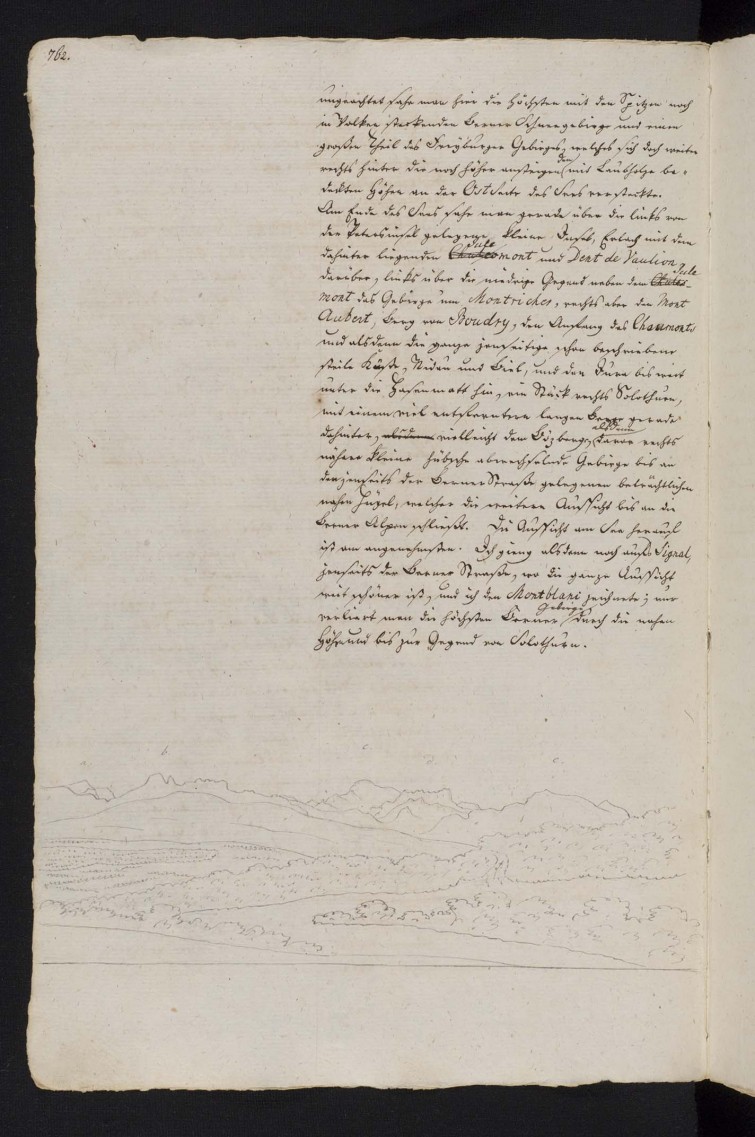 762.
ungeachtet sahe man hier die höchsten mit den Spitzen noch
in Wolken steckenden Berner Schneegebirge und einen
großen Theil des Freyburger Gebirges, welches sich doch weiter
rechts hinter die noch höher ansteigenden mit Laubholze be-
deckten Höhen an der Ostseite des Sees versteckte.
Am Ende des Sees sahe man gerade über die links von
der Petersinsel gelegene, kleine Insel, Erlach mit dem
dahinter liegenden Julemont und Dent de Vaulion
darüber, links über die niedrige Gegend neben dem Jule-
mont das Gebirge um Montricher, rechts aber den Mont
Aubert, Berg von Boudry, den Anfang des Chaumonts
und alsdenn die ganze jenseitige schon beschriebene
steile Küste, Nidau und Biel, und den Jura bis weit
unter die Hasenmatt hin, ein Stück rechts Solothurn,
mit einem viel entfernteren langen Berge gerade
dahinter, vielleicht dem Bözberge, alsdenn davor rechts
nähere kleine hübsche abwechselnde Gebirge bis an
den jenseits der Berner Straße gelegenen beträchtlichen
nahen Hügel, welcher die weitere Aussicht bis an die
Berner Alpen schließt. Die Aussicht am See herauf
ist am angenehmsten. Ich gieng alsdenn noch aufs Signal,
jenseits der Berner Straße, wo die ganze Aussicht
weit schöner ist, und ich den Montblanc zeichnete; nur
verliert man die höchsten Berner Gebirge durch die nahen
Höhen und bis zur Gegend von Solothurn.
b
c